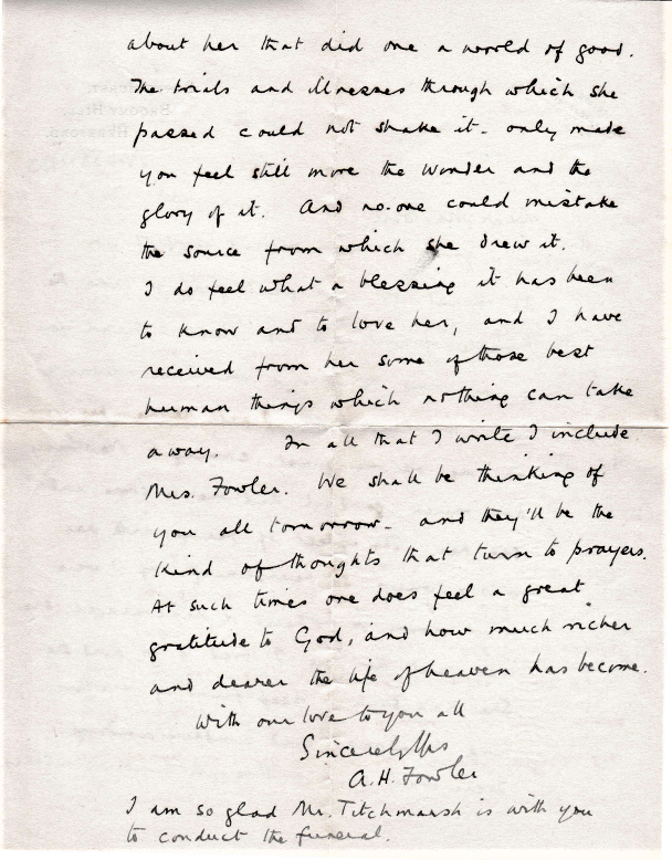 about her that did one a world of good.
The trials and illnesses through which she
passed could not shake it - only made
you feel still more the wonder and the
glory of it. And no-one could mistake
the source from which she drew it.
I do feel what a blessing it has been
to know and to love her, and I have
received from her some of those best
human things which nothing can take
away. In all that I write I include
Mrs. Fowler. We shall be thinking of
you all tomorrow - and they'll be the
kind of thoughts that turn to prayers.
At such times one does feel a great
gratitude to God, and how much richer
and dearer the life of heaven has become.
With our love to you all
Sincerely Yrs
A.H. Fowler
I am so glad Mr. Titchmarsh is with you
to conduct the funeral.